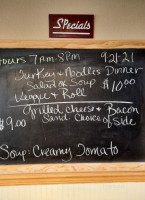 SPecials
Hours 7am-8pm 9-21-21
Turkey & Noodles Dinner
Salad or Soup $10.00
Veggie & Roll
Grilled Cheese & Bacon
$9.00 Sand Choice of Side
Soup: Creamy Tomato